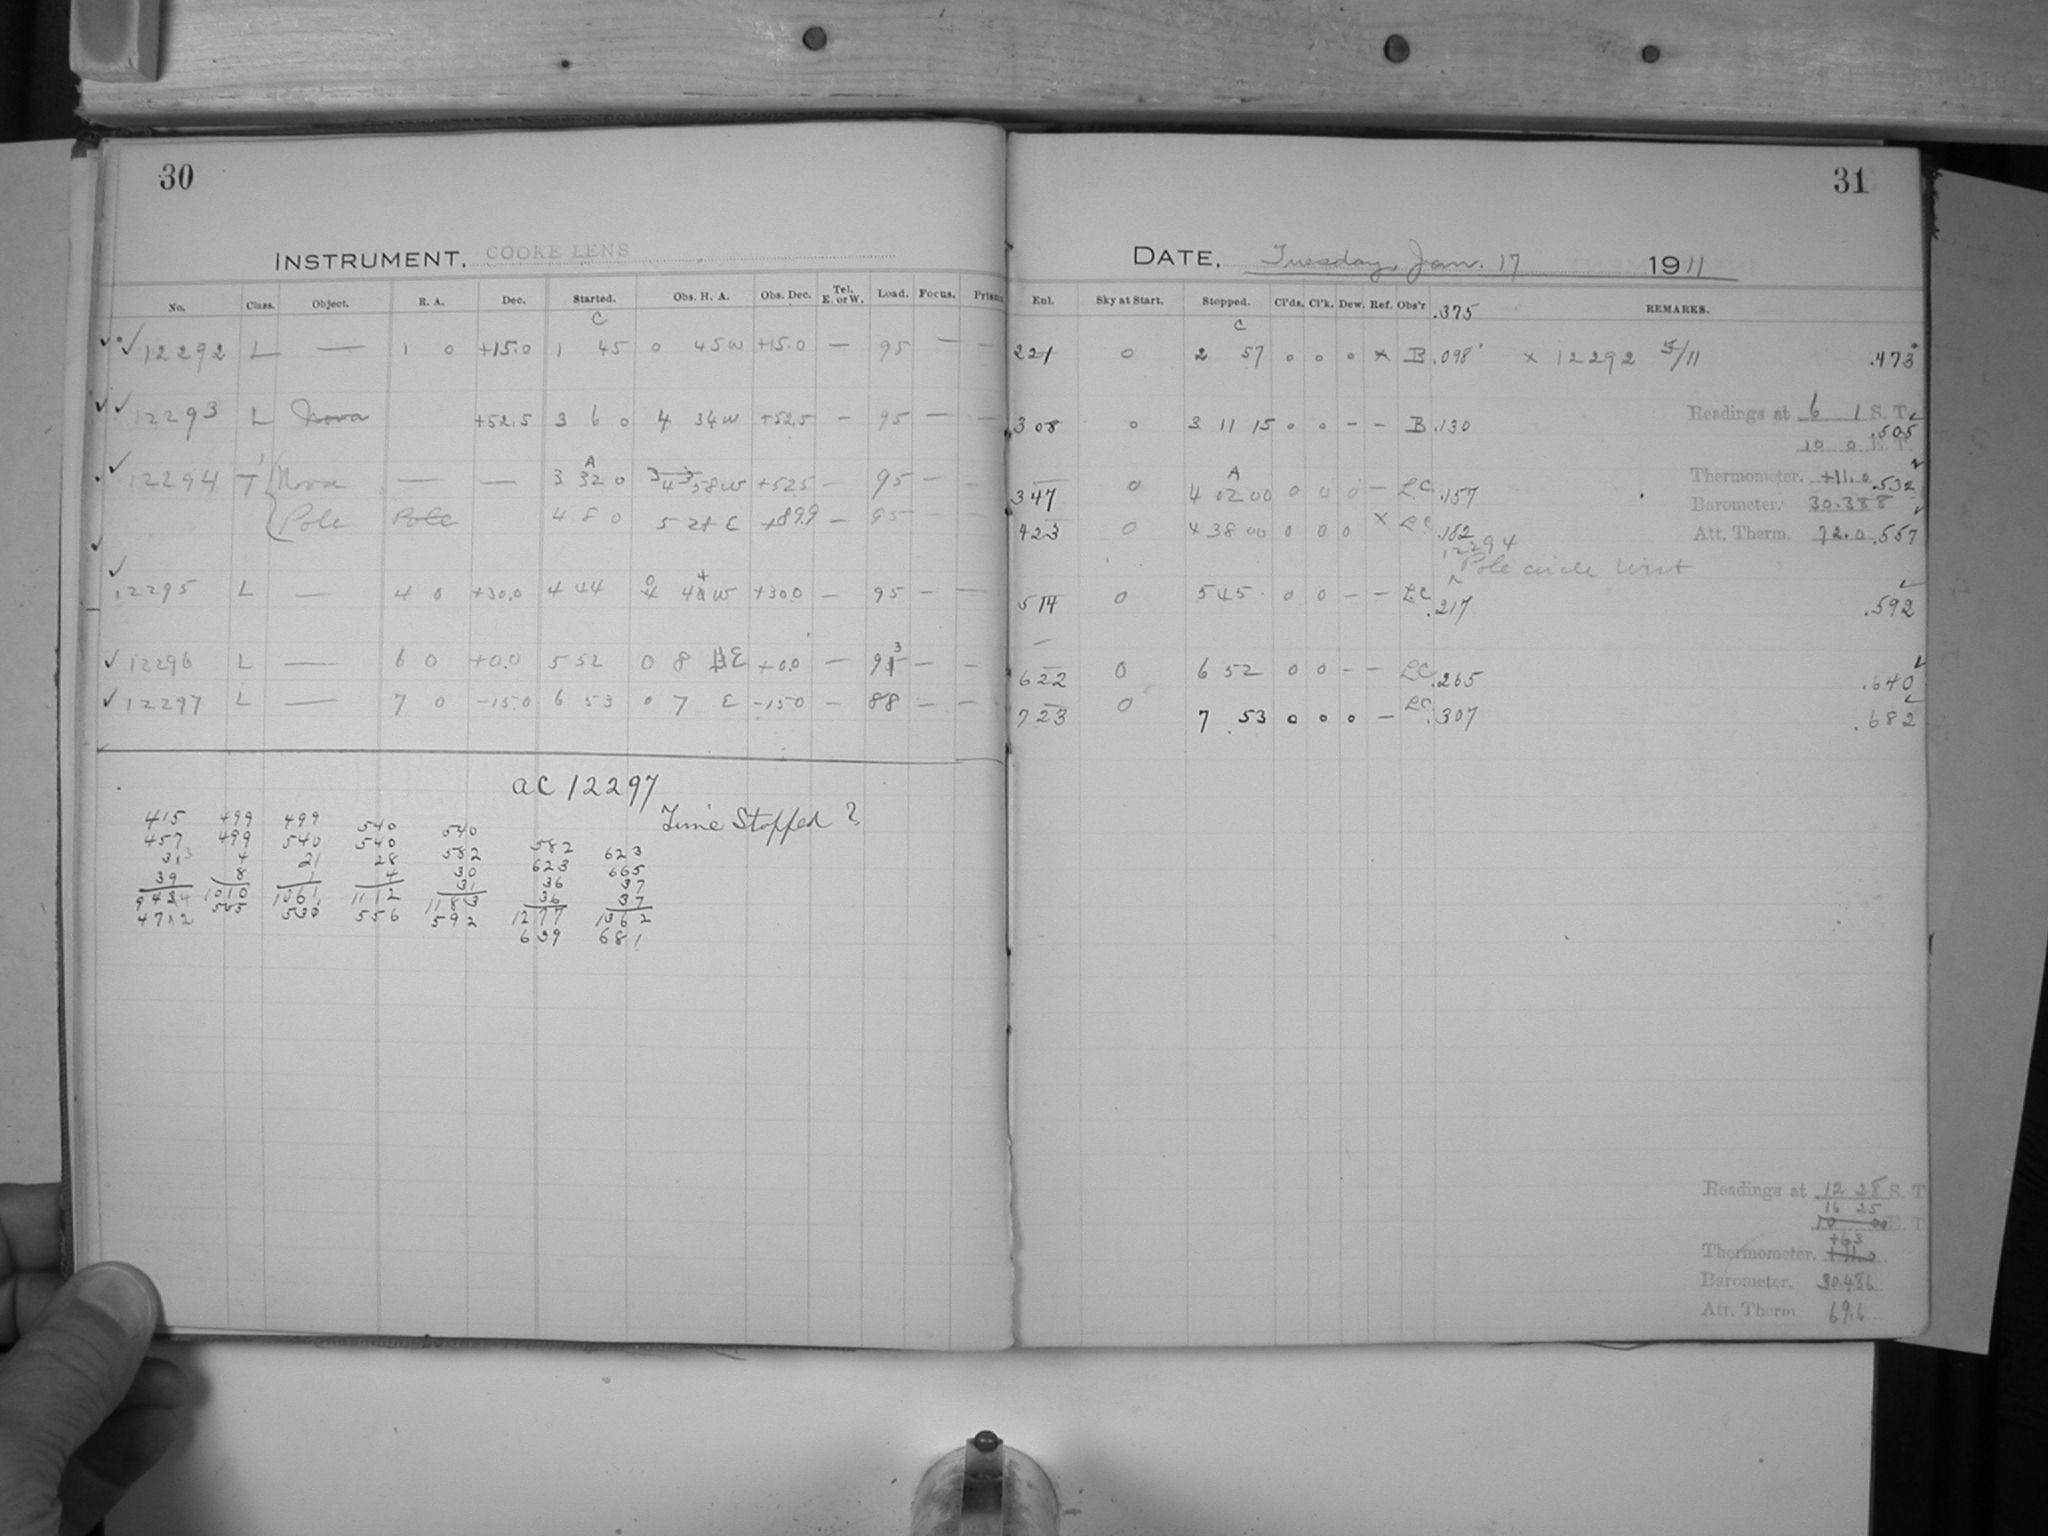 30
INSTRUMENT. COOKE LENS
No. Class. Object. R. A. Dec. Started. Obs. H. A. Obs. Dec. Tel. E. or W. Load. Focus. Prisms
C
12292 L — 1 0 +15.0 1 45 0 45 W +15.0 — 95 — —
12293 L Nova +52.5 3 6 0 4 34 W +52.5 — 95 — —
A
12294 T Nova — — 3 32 0 58 W +52.5 — 95 — —
Pole Pole 4 8 0 E +89.9 — 95 — —
12295 L — 4 0 +30.0 4 44 W +30.0 — 95 — —
12296 L — 6 0 +0.0 5 52 0 8 E +0.0 — — —
12297 L — 7 0 -15.0 6 53 0 7 E -15.0 — 88 — —
AC 12297
Time Stopped ?
415 499 499 540 540 582 623
457 499 540 540 582 623 665
4 21 28 30 36 37
39 8 1 4 31 36 37
1010 1061 1112 1183 1277 1362
505 530 556 592 639 681
31
DATE. Tuesday, Jan. 17 1911
Enl. Sky at Start. Stopped. Cl'ds. Cl'k. Dew. Ref. Obs'r .375 REMARKS.
C
221 0 2 57 0 0 0 x B .098 x 12292 5/11 .473
308 0 3 11 15 0 0 — — B .130
Readings at 6 1 S. T.
.505
10 0 E. T.
A
347 0 4 02 00 0 0 0 — LC .157
Thermometer. +11.0 .532
Barometer. 30.388
423 0 4 38 00 0 0 0 x LC .182
Att. Therm. 72.0 .557
12294
Pole circle West
514 0 5 45 0 0 — — LC .217 .592
622 0 6 52 0 0 — — LC .265 .640
723 0 7 53 0 0 0 — LC .307 .682
Readings at 12 28 S. T
16 25
10 0 E. T
+6.3
Thermometer. +11.0
Barometer. 30.486
Att. Therm 69.6